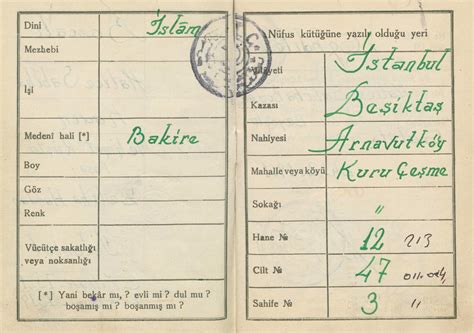 Dini İslâm
Mezhebi
İşi
Medenî hali [*] Bakire
Boy
Göz
Renk
Vücütçe sakatlığı
veya noksanlığı
[*] Yani bekâr mı, ? evli mi ? dul mu ?
boşamış mı ? boşanmış mı ?
Nüfus kütüğüne yazılı olduğu yeri
İstanbul
Kazası Beşiktaş
Nahiyesi Arnavutköy
Mahalle veya köyü Kuru Çeşme
Sokağı "
Hane № 12 213
Cilt № 47
Sahife № 3 "